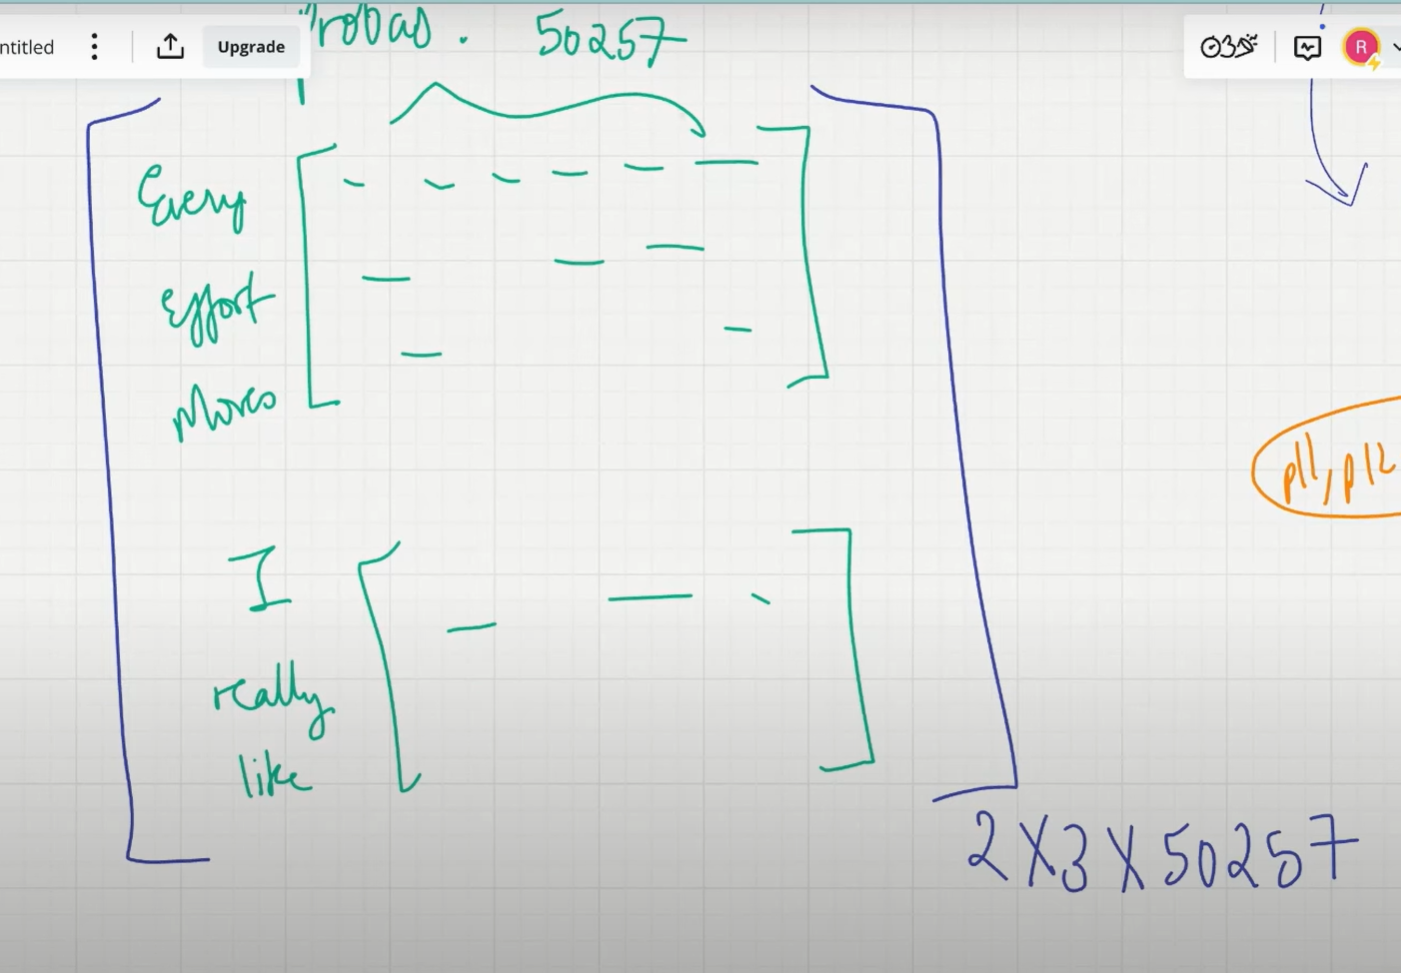 ntitled
Upgrade
R
Probas. 50257
Every
effort
Moves
I
really
like
p11, p12
2X3X50257